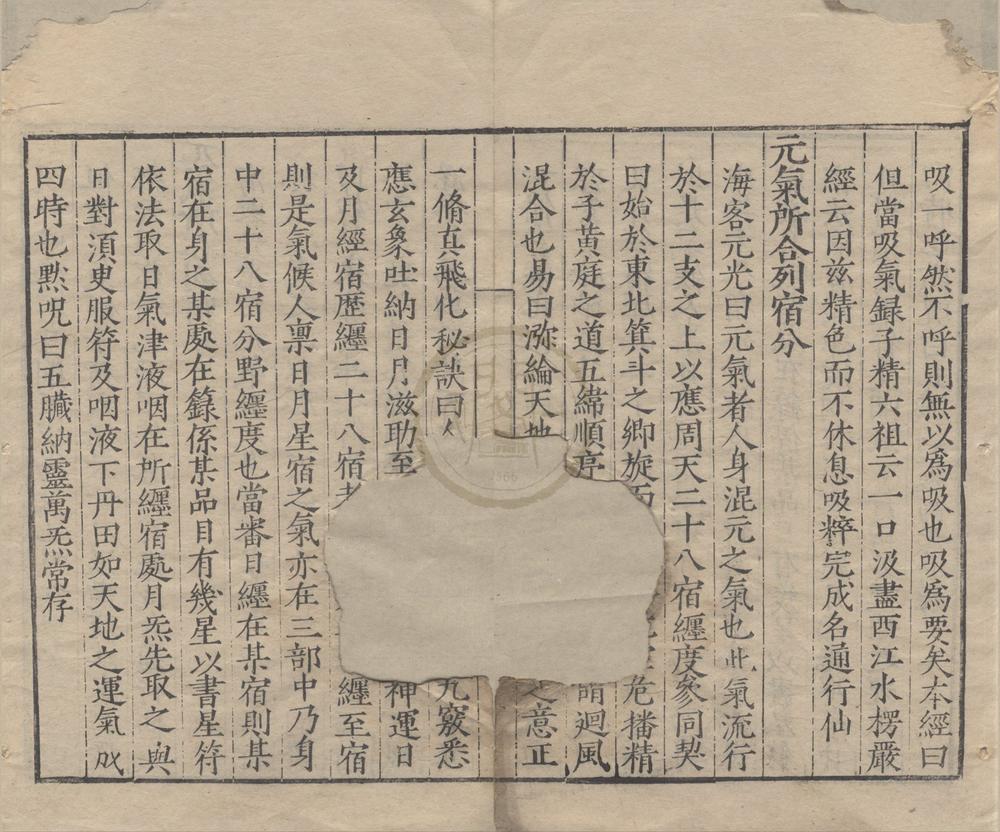 吸一呼然不呼則無以爲吸也吸爲要矣本經曰
但當吸氣録子精六祖云一口汲盡西江水楞嚴
經云因兹精色而不休息吸粹完成名通行仙
元氣所合列宿分
海客元光曰元氣者人身混元之氣也此氣流行
於十二支之上以應周天二十八宿纏度參同契
曰始於東北箕斗之鄉旋而危播精
於子黃庭之道五緯順亭萌迴風
混合也易曰濔綸天地之意正
一脩真飛化秘訣曰人九竅悉
應玄象吐納日月滋助至神運日
及月經宿歷纏二十八宿者纏至宿
則是氣候人禀日月星宿之氣亦在三部中乃身
中二十八宿分野纏度也當審日纏在某宿則某
宿在身之某處在籙係某品目有幾星以書星符
依法取日氣津液咽在所纏宿處月炁先取之與
日對湏臾服符及咽液下丹田如天地之運氣成
四時也黙呪曰五臓納靈萬炁常存